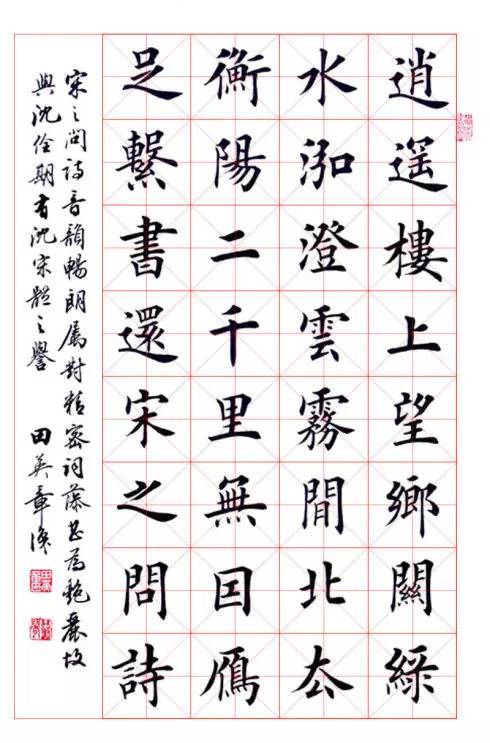 逍遥樓上望鄉關綠
水泓澄雲霧間北去
衡陽二千里無因雁
足繫書還宋之問詩
宋之问詩音韻暢朗属對精密词藻甚为艳麗故
與沈佺期有沈宋體之譽 田英章溪